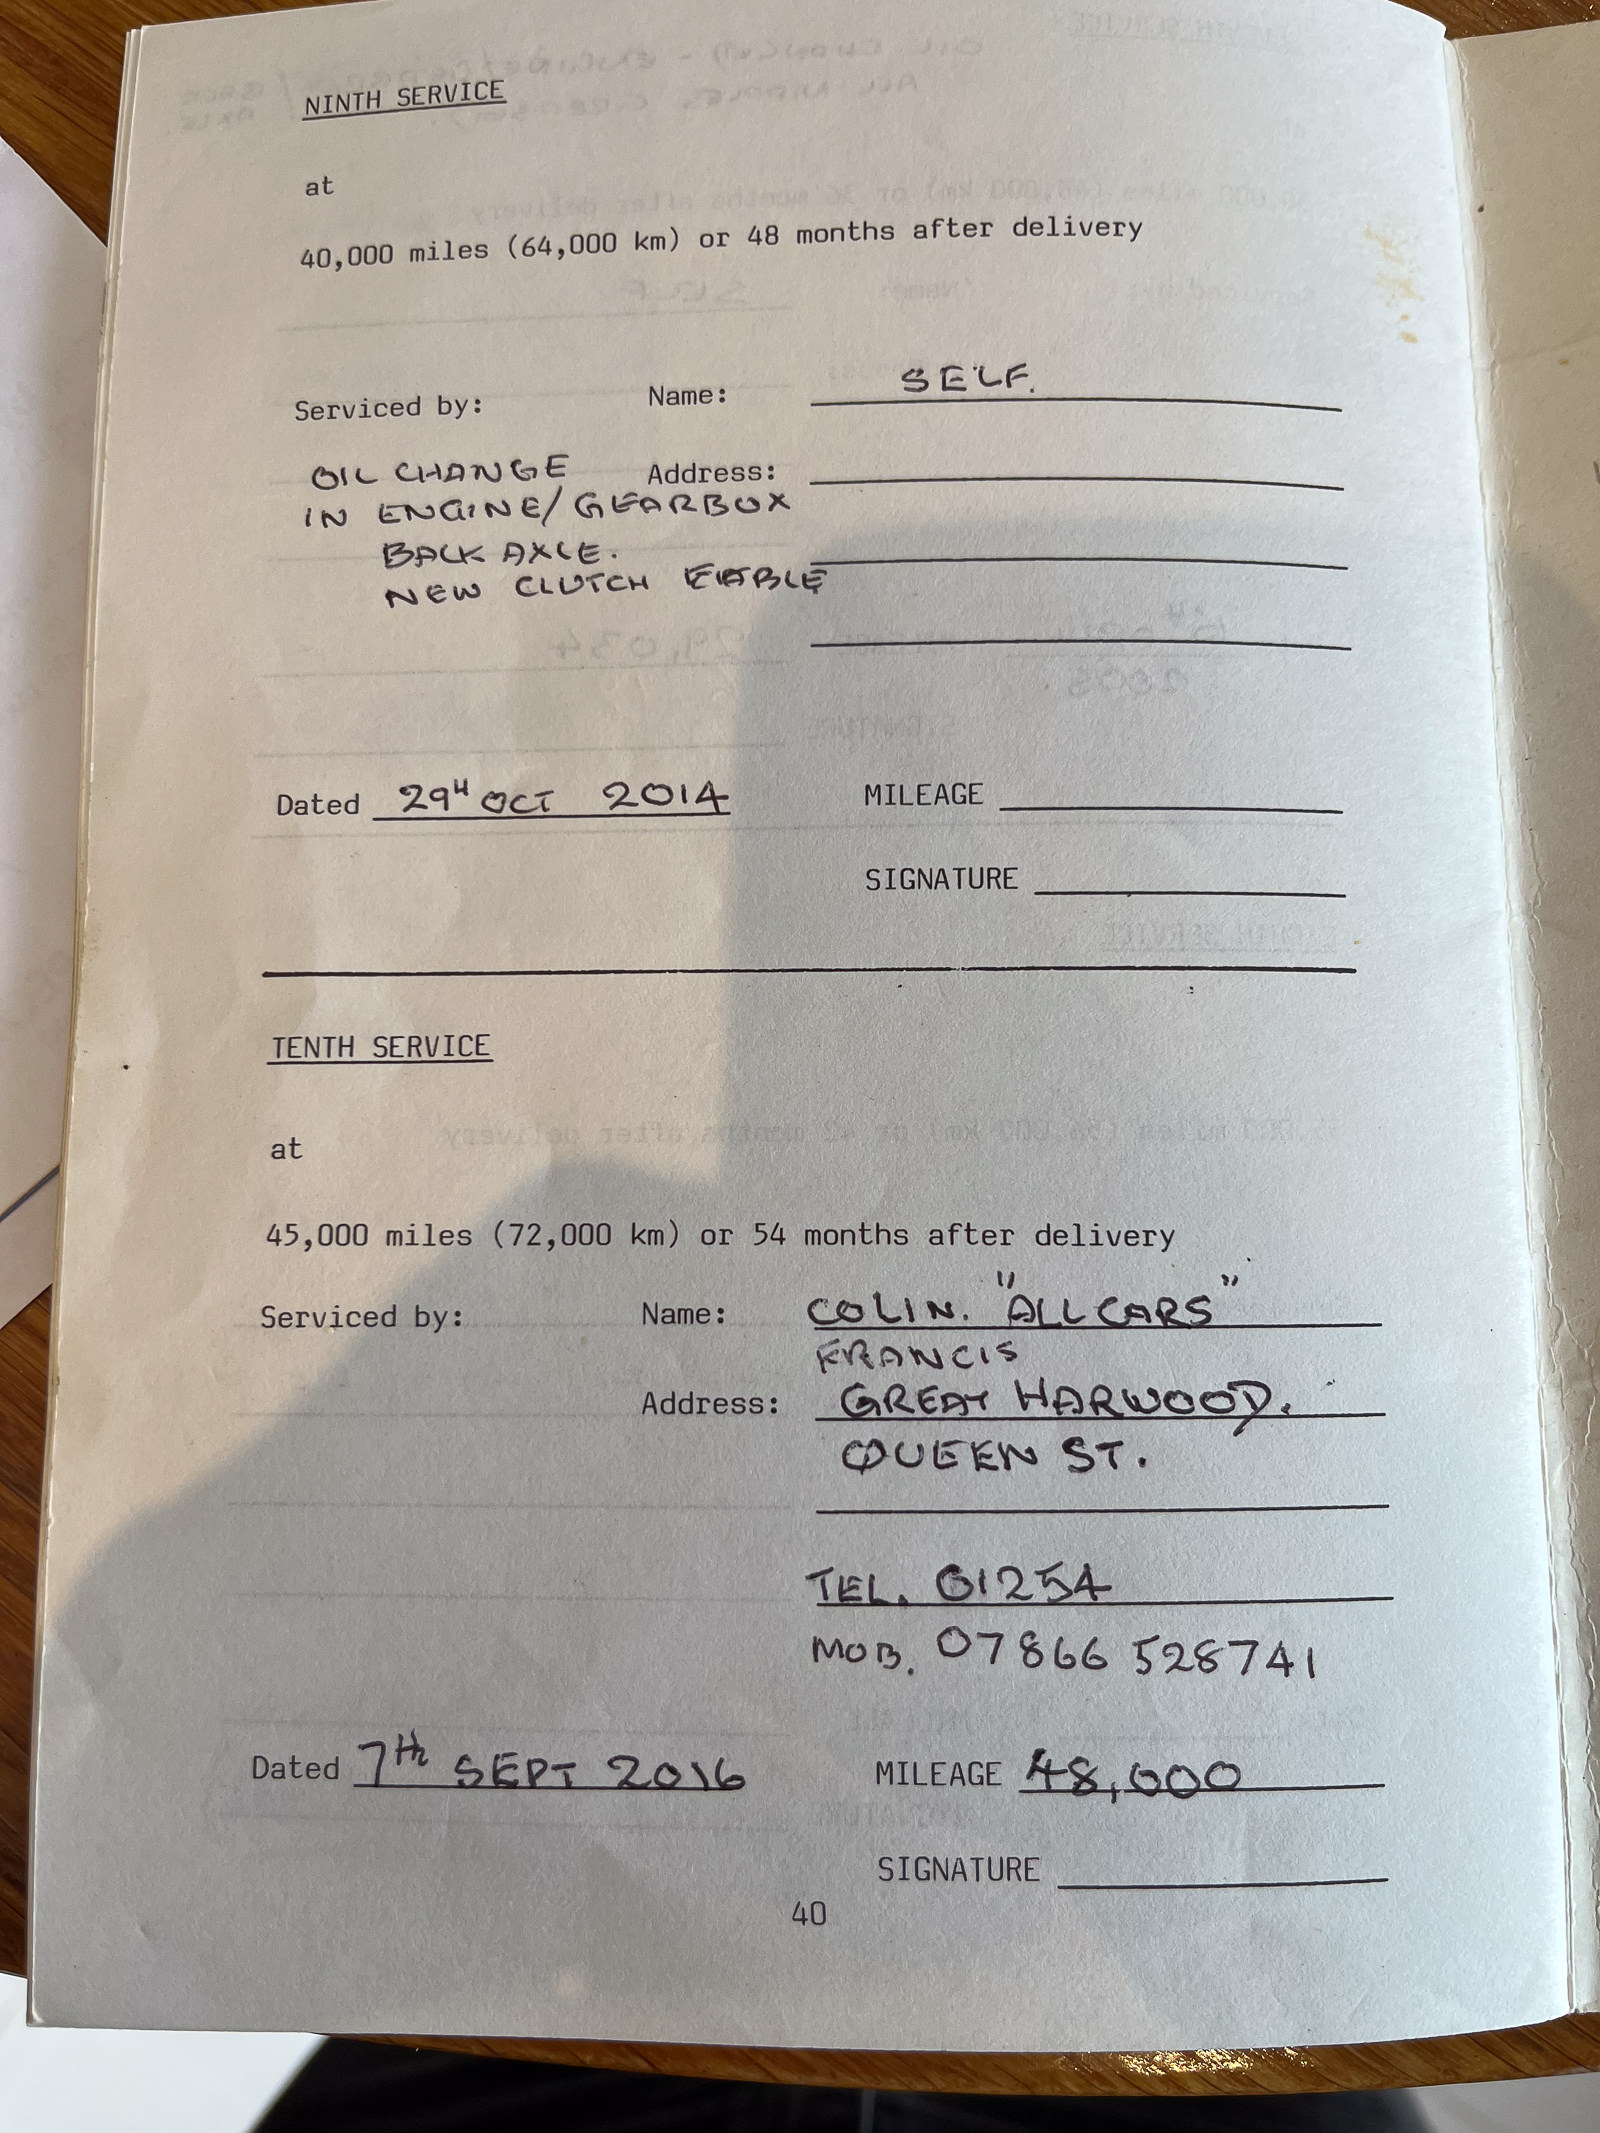 NINTH SERVICE
at
40,000 miles (64,000 km) or 48 months after delivery
Serviced by: Name: SELF.
OIL CHANGE Address:
IN ENGINE/GEARBOX
BACK AXLE.
NEW CLUTCH CABLE
Dated 29th OCT 2014 MILEAGE
SIGNATURE
TENTH SERVICE
at
45,000 miles (72,000 km) or 54 months after delivery
Serviced by: Name: COLIN. "ALL CARS"
FRANCIS
Address: GREAT HARWOOD.
QUEEN ST.
TEL. 01254
MOB. 07866 528741
Dated 7th SEPT 2016 MILEAGE 48,000
SIGNATURE
40